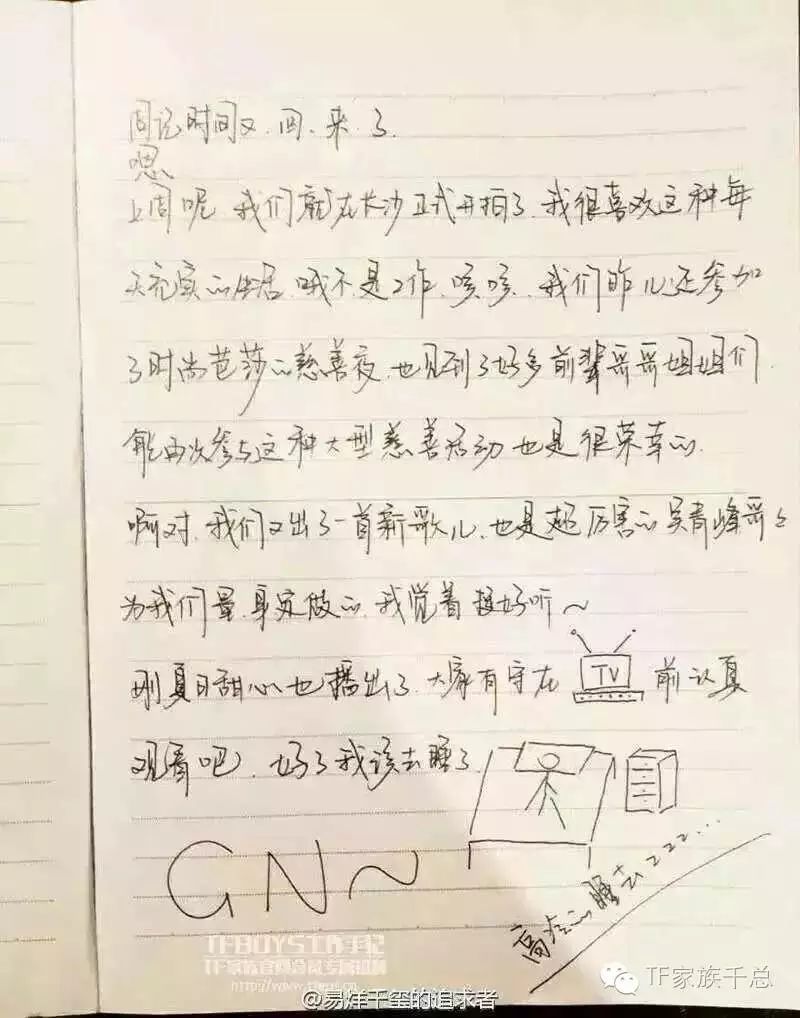 周记时间又回来了
嗯
上周呢 我们就在长沙正式开拍了.我很喜欢这种每
天充实的生活.哦不是工作.咳咳.我们昨儿还参加
了时尚芭莎的慈善夜.也见到了好多前辈哥哥姐姐们.
能再次参与这种大型慈善活动也是很荣幸的.
啊对.我们又出了一首新歌儿.也是超厉害的吴青峰哥哥
为我们量身定做的.我觉着挺好听~
刚夏日甜心也播出了.大家有守在 TV 前认真
观看吧.好了我该去睡了.
GN~
高冷的睡去zzz...
TFBOYS工作手记
TF家族
@易烊千玺的追求者
TF家族千总